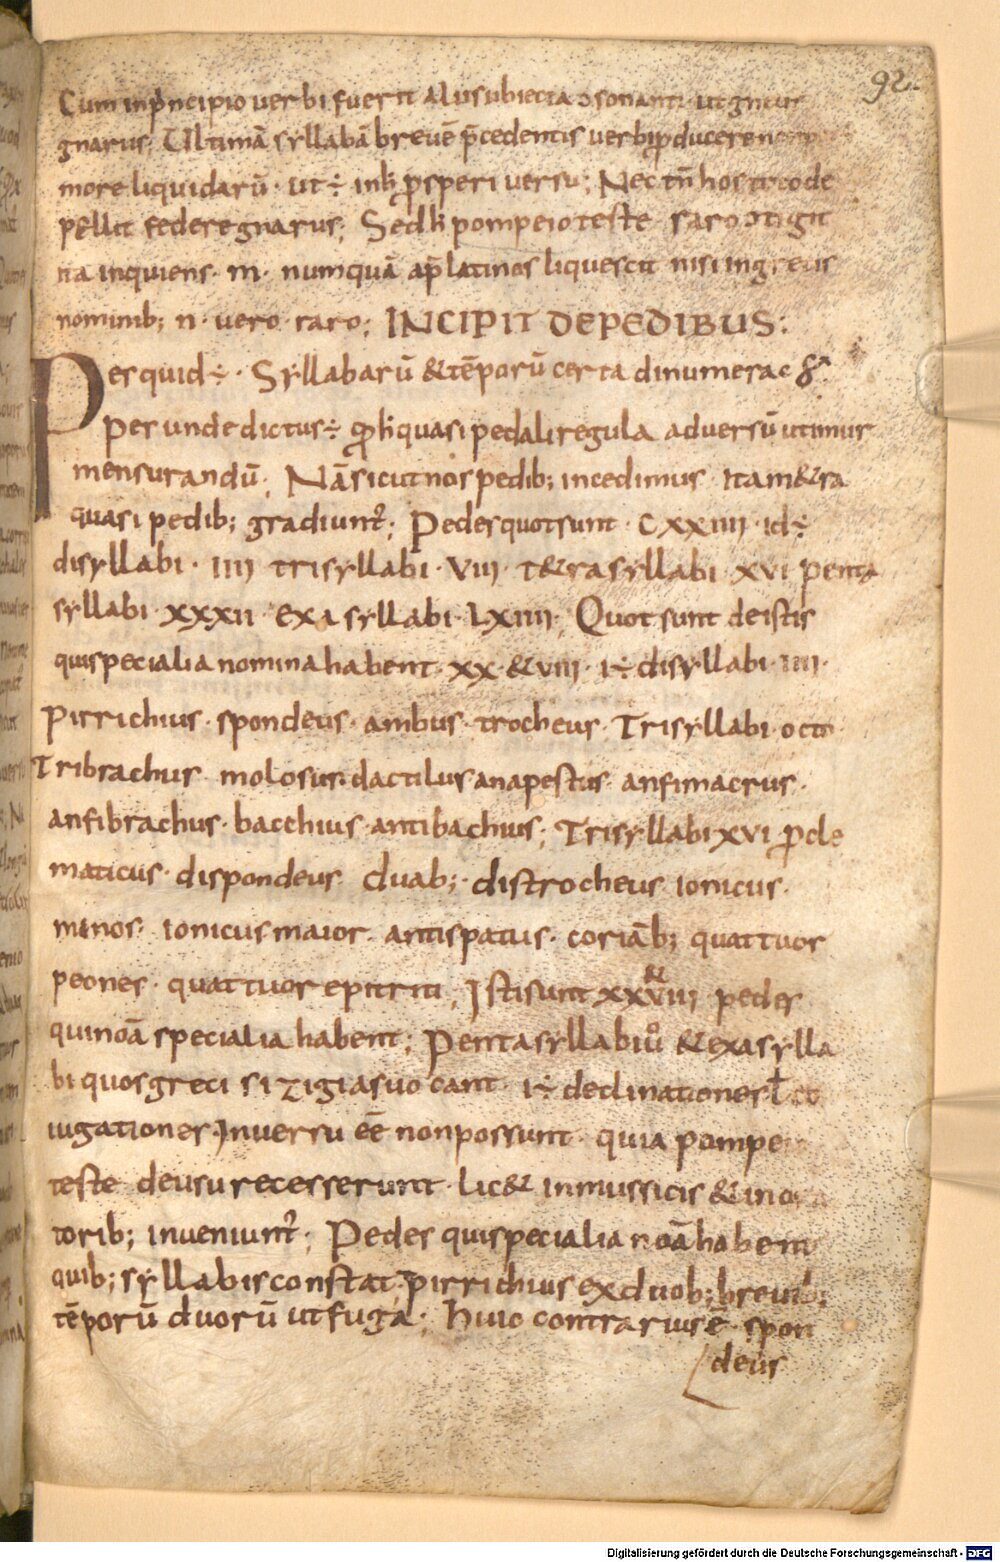 92.
Cum inpncipio verbi fuerit alii subiecta ɔsonanti· ut gnitus
gnarus; Ultimā syllabā brevē p̄cedentis verbi ꝓducere
more liquidarū· ut ÷ inli ꝓsperi versu; Nec tn̄ hos tu code
pellit federe gnarus; Sed li pompeio teste raro ɔtigit
ita inquiens· m· numquā ap̄ latinos liquescit nisi in grecis
nominib; n· vero· raro; INCIPIT DE PEDIBUS:
Pes quid ÷· Syllabarū & tēporū certa dinumeratio
Pes unde dictus ÷ ꝓ li quasi pedali regula ad versū utimur
mensurandū; Nā sicut nos pedib; incedimus· ita m&ra
quasi pedib; gradiunt̉; Pedes quot sunt· CXXIIII· id ÷
disyllabi· IIII trisyllabi· VIII· t&rasyllabi· XVI penta
syllabi· XXXII· Exasyllabi· LXIIII; Quot sunt de istis
qui specialia nomina habent· XX· & VIII· i ÷ disyllabi· IIII·
Pirrichius· spondeus· ambus· trocheus· Trisyllabi· octo
Tribrachus· molosus· dactilus anapestus· anfimacrus·
anfibrachus· bacchius· antibachius; Trisyllabi XVI ꝓcle
maticus· dispondeus· duab;· distrocheus· ionicus·
minos· ionicus maior· antispatus· coriāb; quattuor
peones· quattuor epitriti; Isti sunt XX & VIII pedes
qui noā specialia habent; Pentasyllabi ů & exasylla
bi quos greci sizigias vocant· i ÷ declinationes ł co
iugationes· In versu ēe non possunt· quia pompe
teste de usu recesserunt· lic& in mussicis & in
torib; inveniunt̉; Pedes qui specialia noā habent
quib; syllabis constat· pirrichius ex duob; brevib;
tēporū duorū ut fuga; Huic contrarius ē· spon
deus
Digitalisierung gefördert durch die Deutsche Forschungsgemeinschaft - DFG